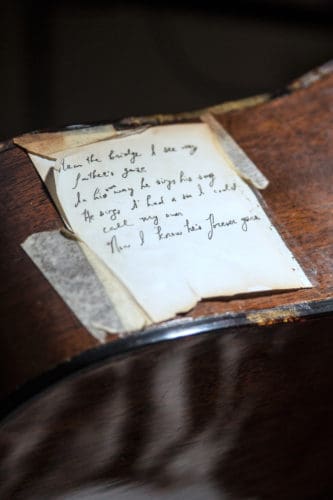 the bridge I see my
father's gaze
In his way he sings his song
He sings, I had a son I could
call my own
Now I know he's forever gone